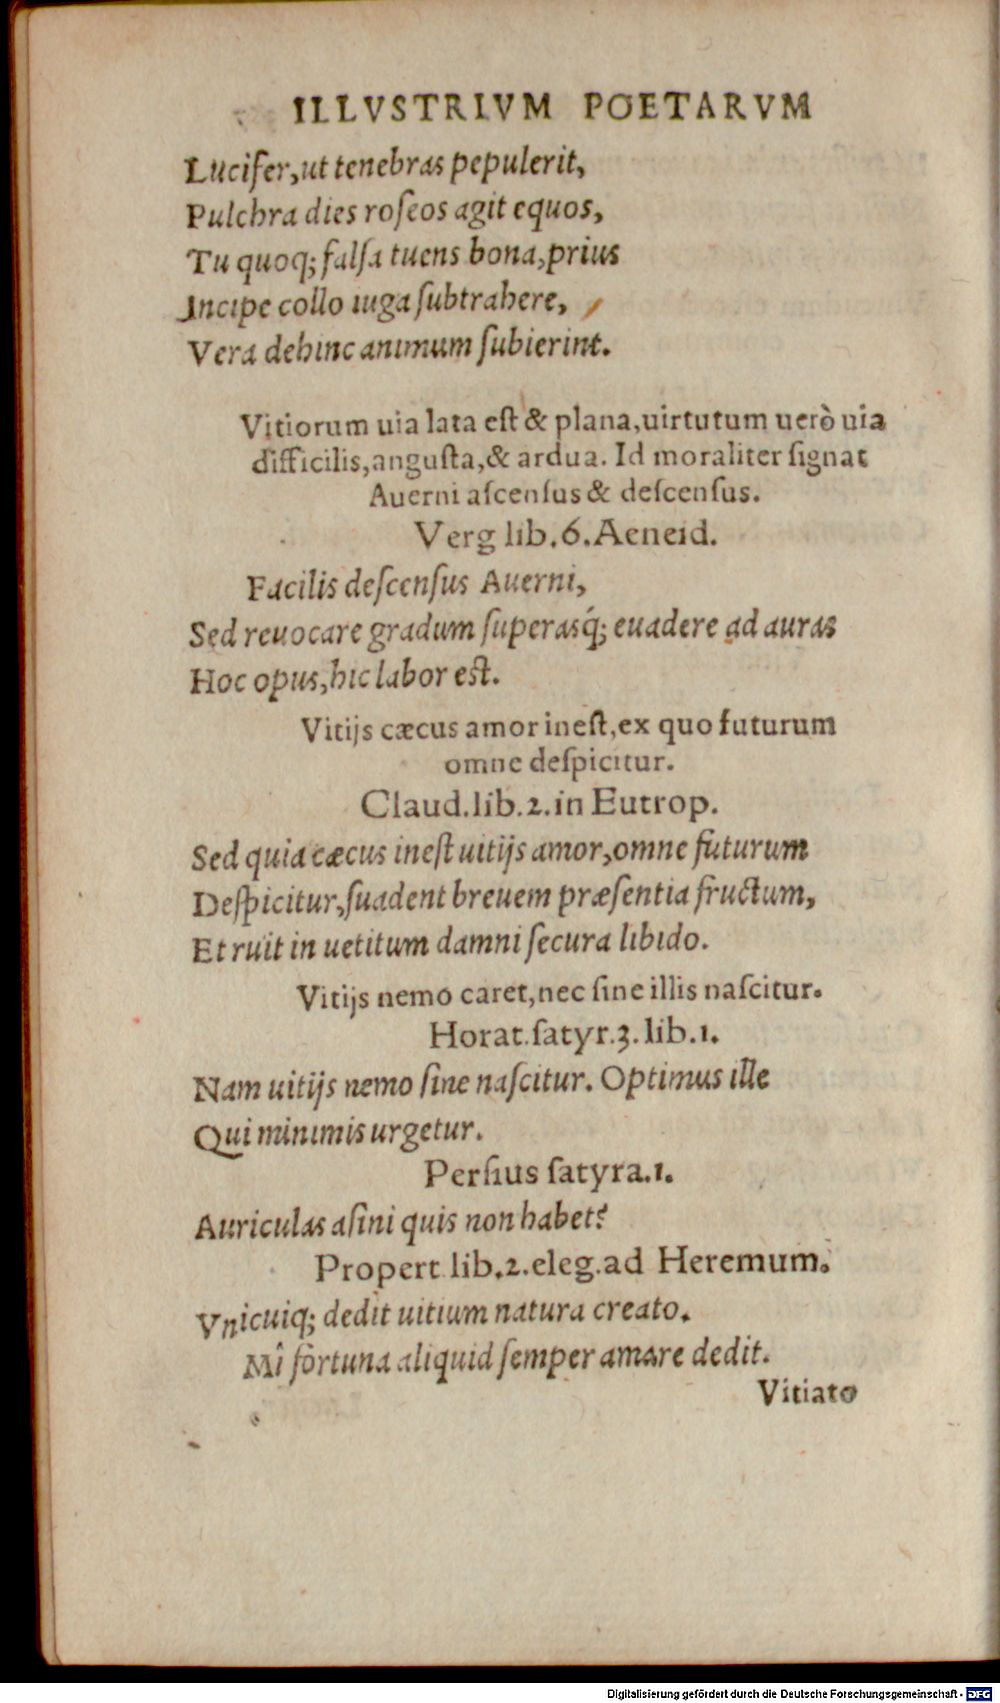 ILLVSTRIVM POETARVM
Lucifer, ut tenebras pepulerit,
Pulchra dies roſeos agit equos,
Tu quoq; falſa tuens bona, prius
Incipe collo iuga ſubtrahere,
Vera dehinc animum ſubierint.
Vitiorum uia lata eſt & plana, uirtutum uerò uia
difficilis, anguſta, & ardua. Id moraliter ſignat
Auerni aſcenſus & deſcenſus.
Verg lib. 6. Aeneid.
Facilis deſcenſus Auerni,
Sed reuocare gradum ſuperasq́; euadere ad auras
Hoc opus, hic labor eſt.
Vitijs cæcus amor ineſt, ex quo futurum
omne deſpicitur.
Claud. lib. 2. in Eutrop.
Sed quia cæcus ineſt uitijs amor, omne futurum
Deſpicitur, ſuadent breuem præſentia fructum,
Et ruit in uetitum damni ſecura libido.
Vitijs nemo caret, nec ſine illis naſcitur.
Horat. ſatyr. 3. lib. 1.
Nam uitijs nemo ſine naſcitur. Optimus ille
Qui minimis urgetur.
Perſius ſatyra. 1.
Auriculas aſini quis non habet?
Propert lib. 2. eleg. ad Heremum.
Vnicuiq; dedit uitium natura creato.
Mî fortuna aliquid ſemper amare dedit.
Vitiato
Digitalisierung gefördert durch die Deutsche Forschungsgemeinschaft - DFG